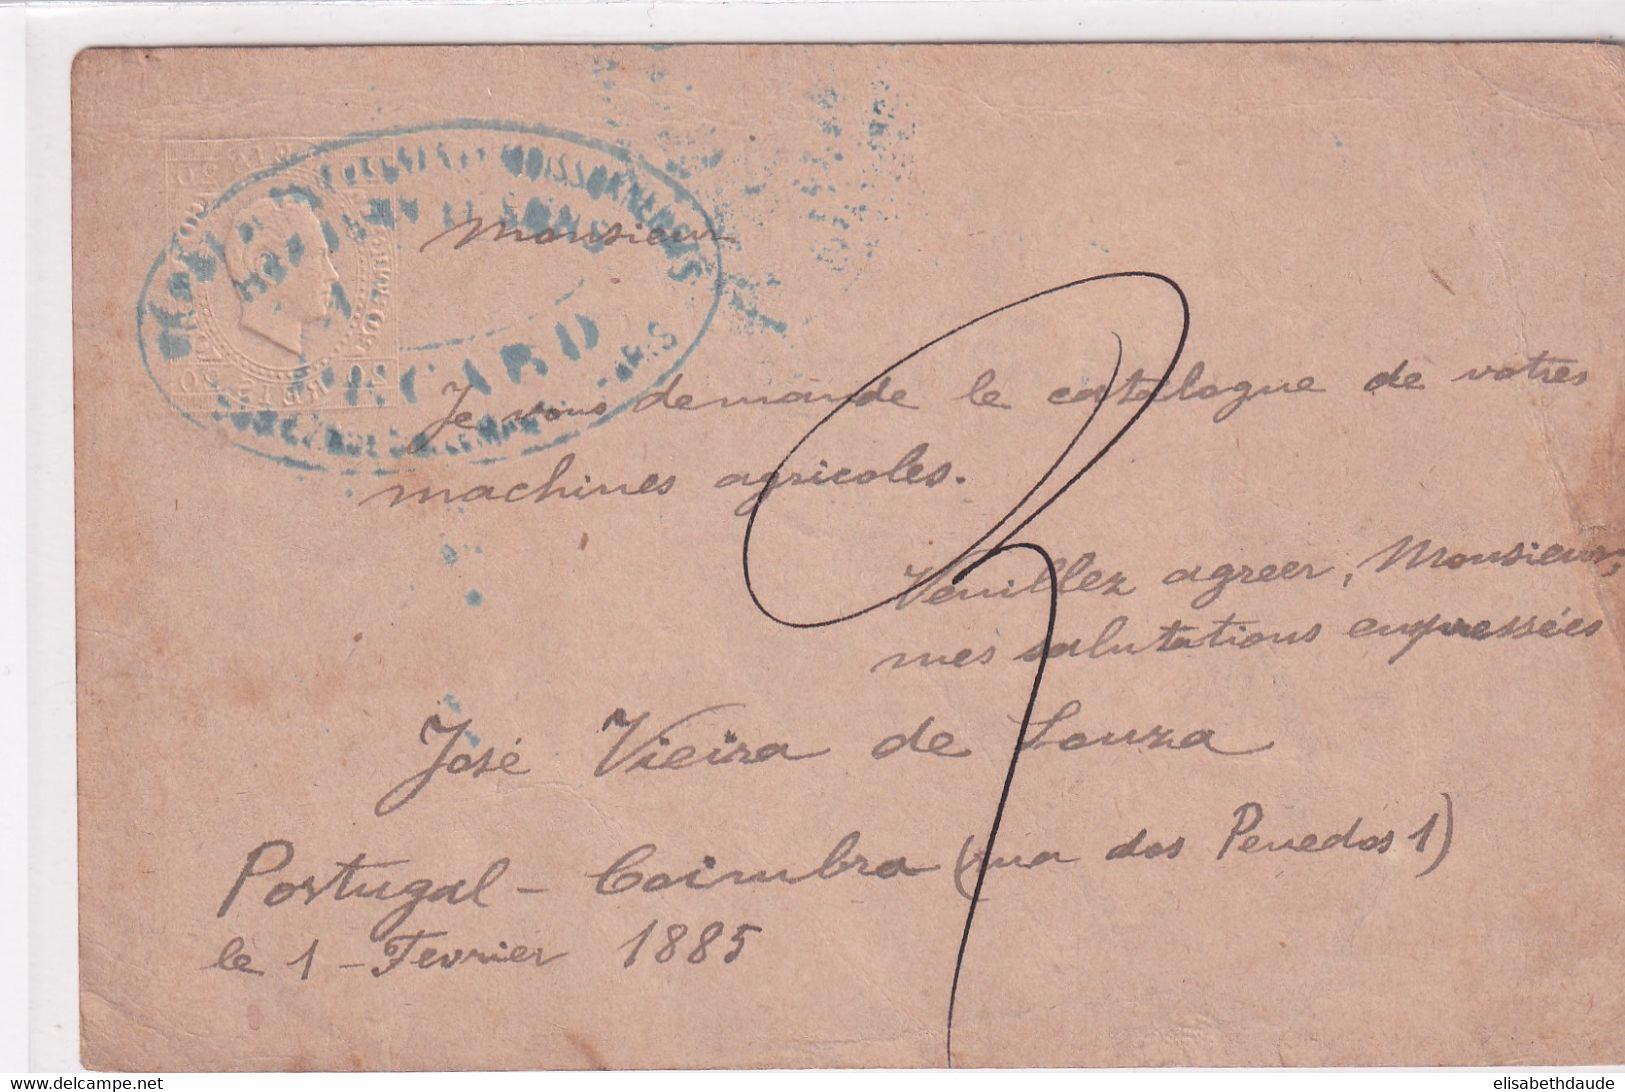 Monsieur
Je vous demande le catalogue de votres
machines agricoles.
Veuillez agreer, Monsieur,
mes salutations empressées
José Vieira de Souza
Portugal - Coimbra (rua dos Penedos 1)
le 1 - Fevrier 1885
www.delcampe.net
elisabethdaude